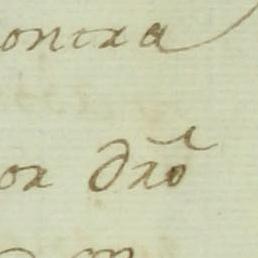 ontra
or dro